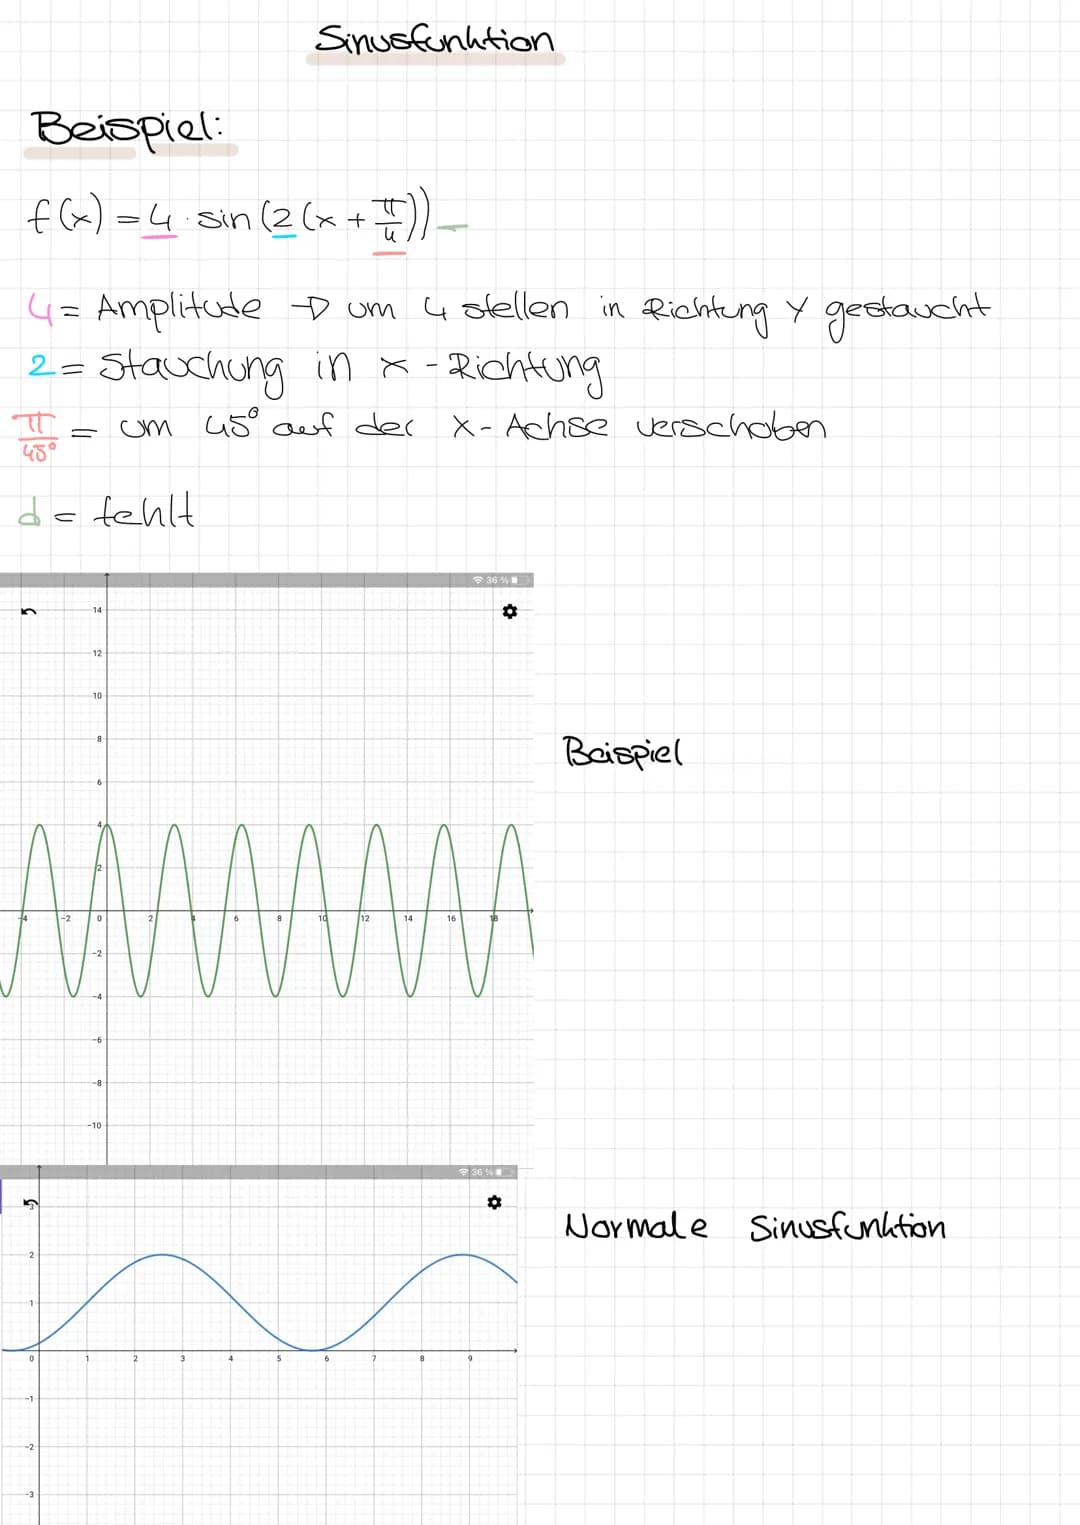 Sinusfunktion
Beispiel:
f(x) = 4 · sin(2(x + π/4))
4 = Amplitude → um 4 stellen in Richtung y gestaucht
2 = Stauchung in x - Richtung
π/45° = um 45° auf der x - Achse verschoben
d = fehlt
36 %
14
12
10
8
6
4
2
-4 -2 0 2 4 6 8 10 12 14 16 18
-2
-4
-6
-8
-10
Beispiel
36 %
3
2
1
0 1 2 3 4 5 6 7 8 9
-1
-2
-3
Normale Sinusfunktion